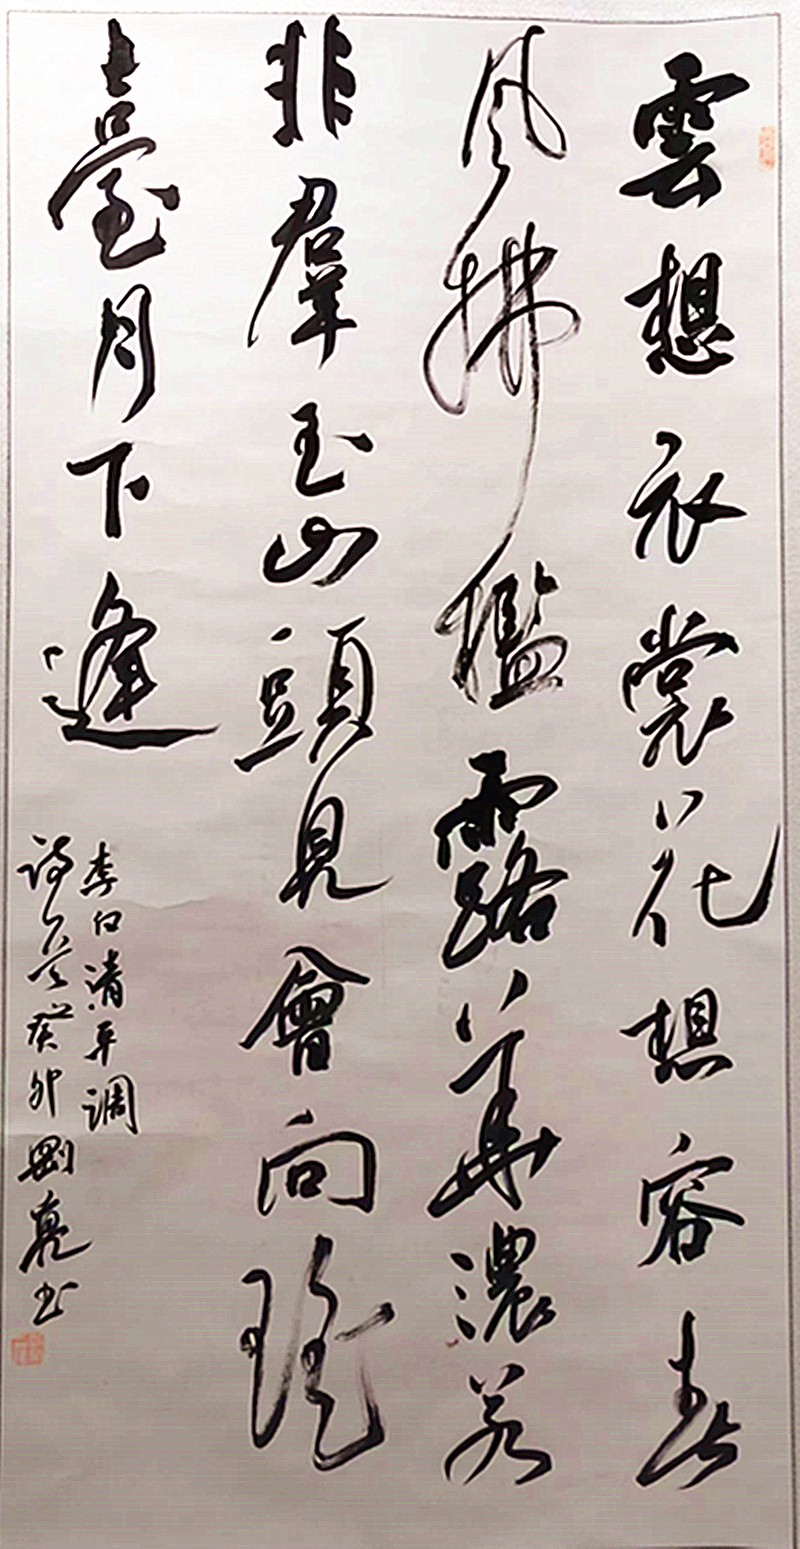 雲想衣裳花想容春
風拂檻露華濃若
非羣玉山頭見會向瑤
臺月下逢
李白清平调
诗一首癸卯劉亮书